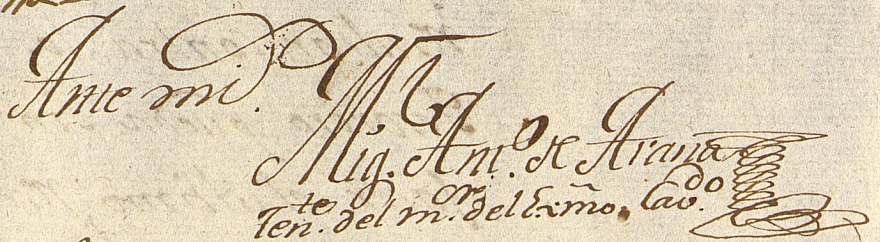 Ante mi.
Mig. Anto. de Arana
Tente. del mor. del Exmo. Cavdo.